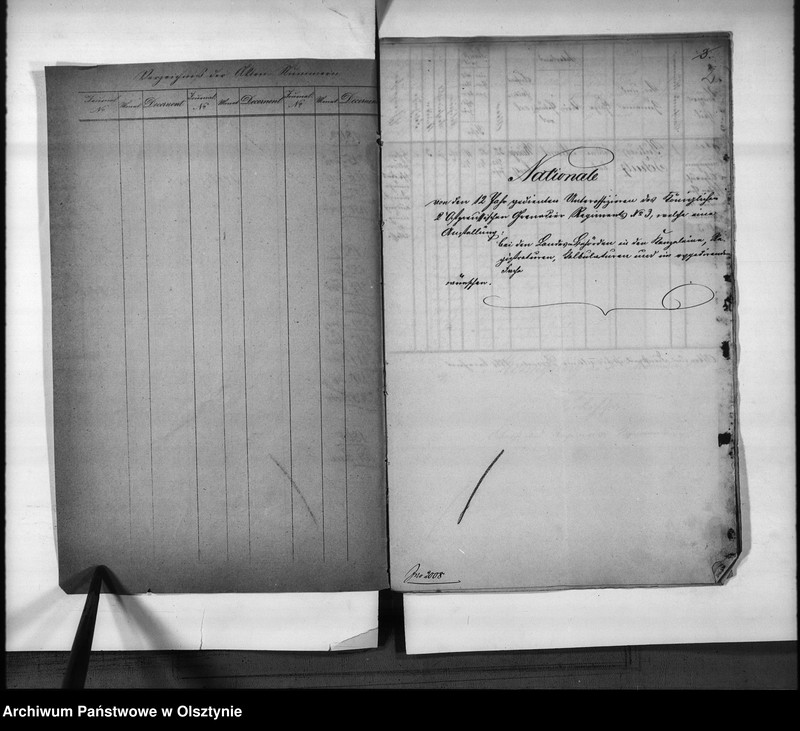 Verzeichniß der Akten-Nummern
Journal No Monat Document Journal No Monat Document Journal No Monat Document
3.
Nationale
von den 12 Jahr gedienten Unteroffizieren des Königlichen
2 Ostpreußischen Grenadier Regiments No 3, welche eine
Anstellung,
bei den Landes-Behörden in den Kanzeleien, Re-
gistraturen, Calculaturen und im expedirenden
Fache
wünschen.
2008
Archiwum Państwowe w Olsztynie